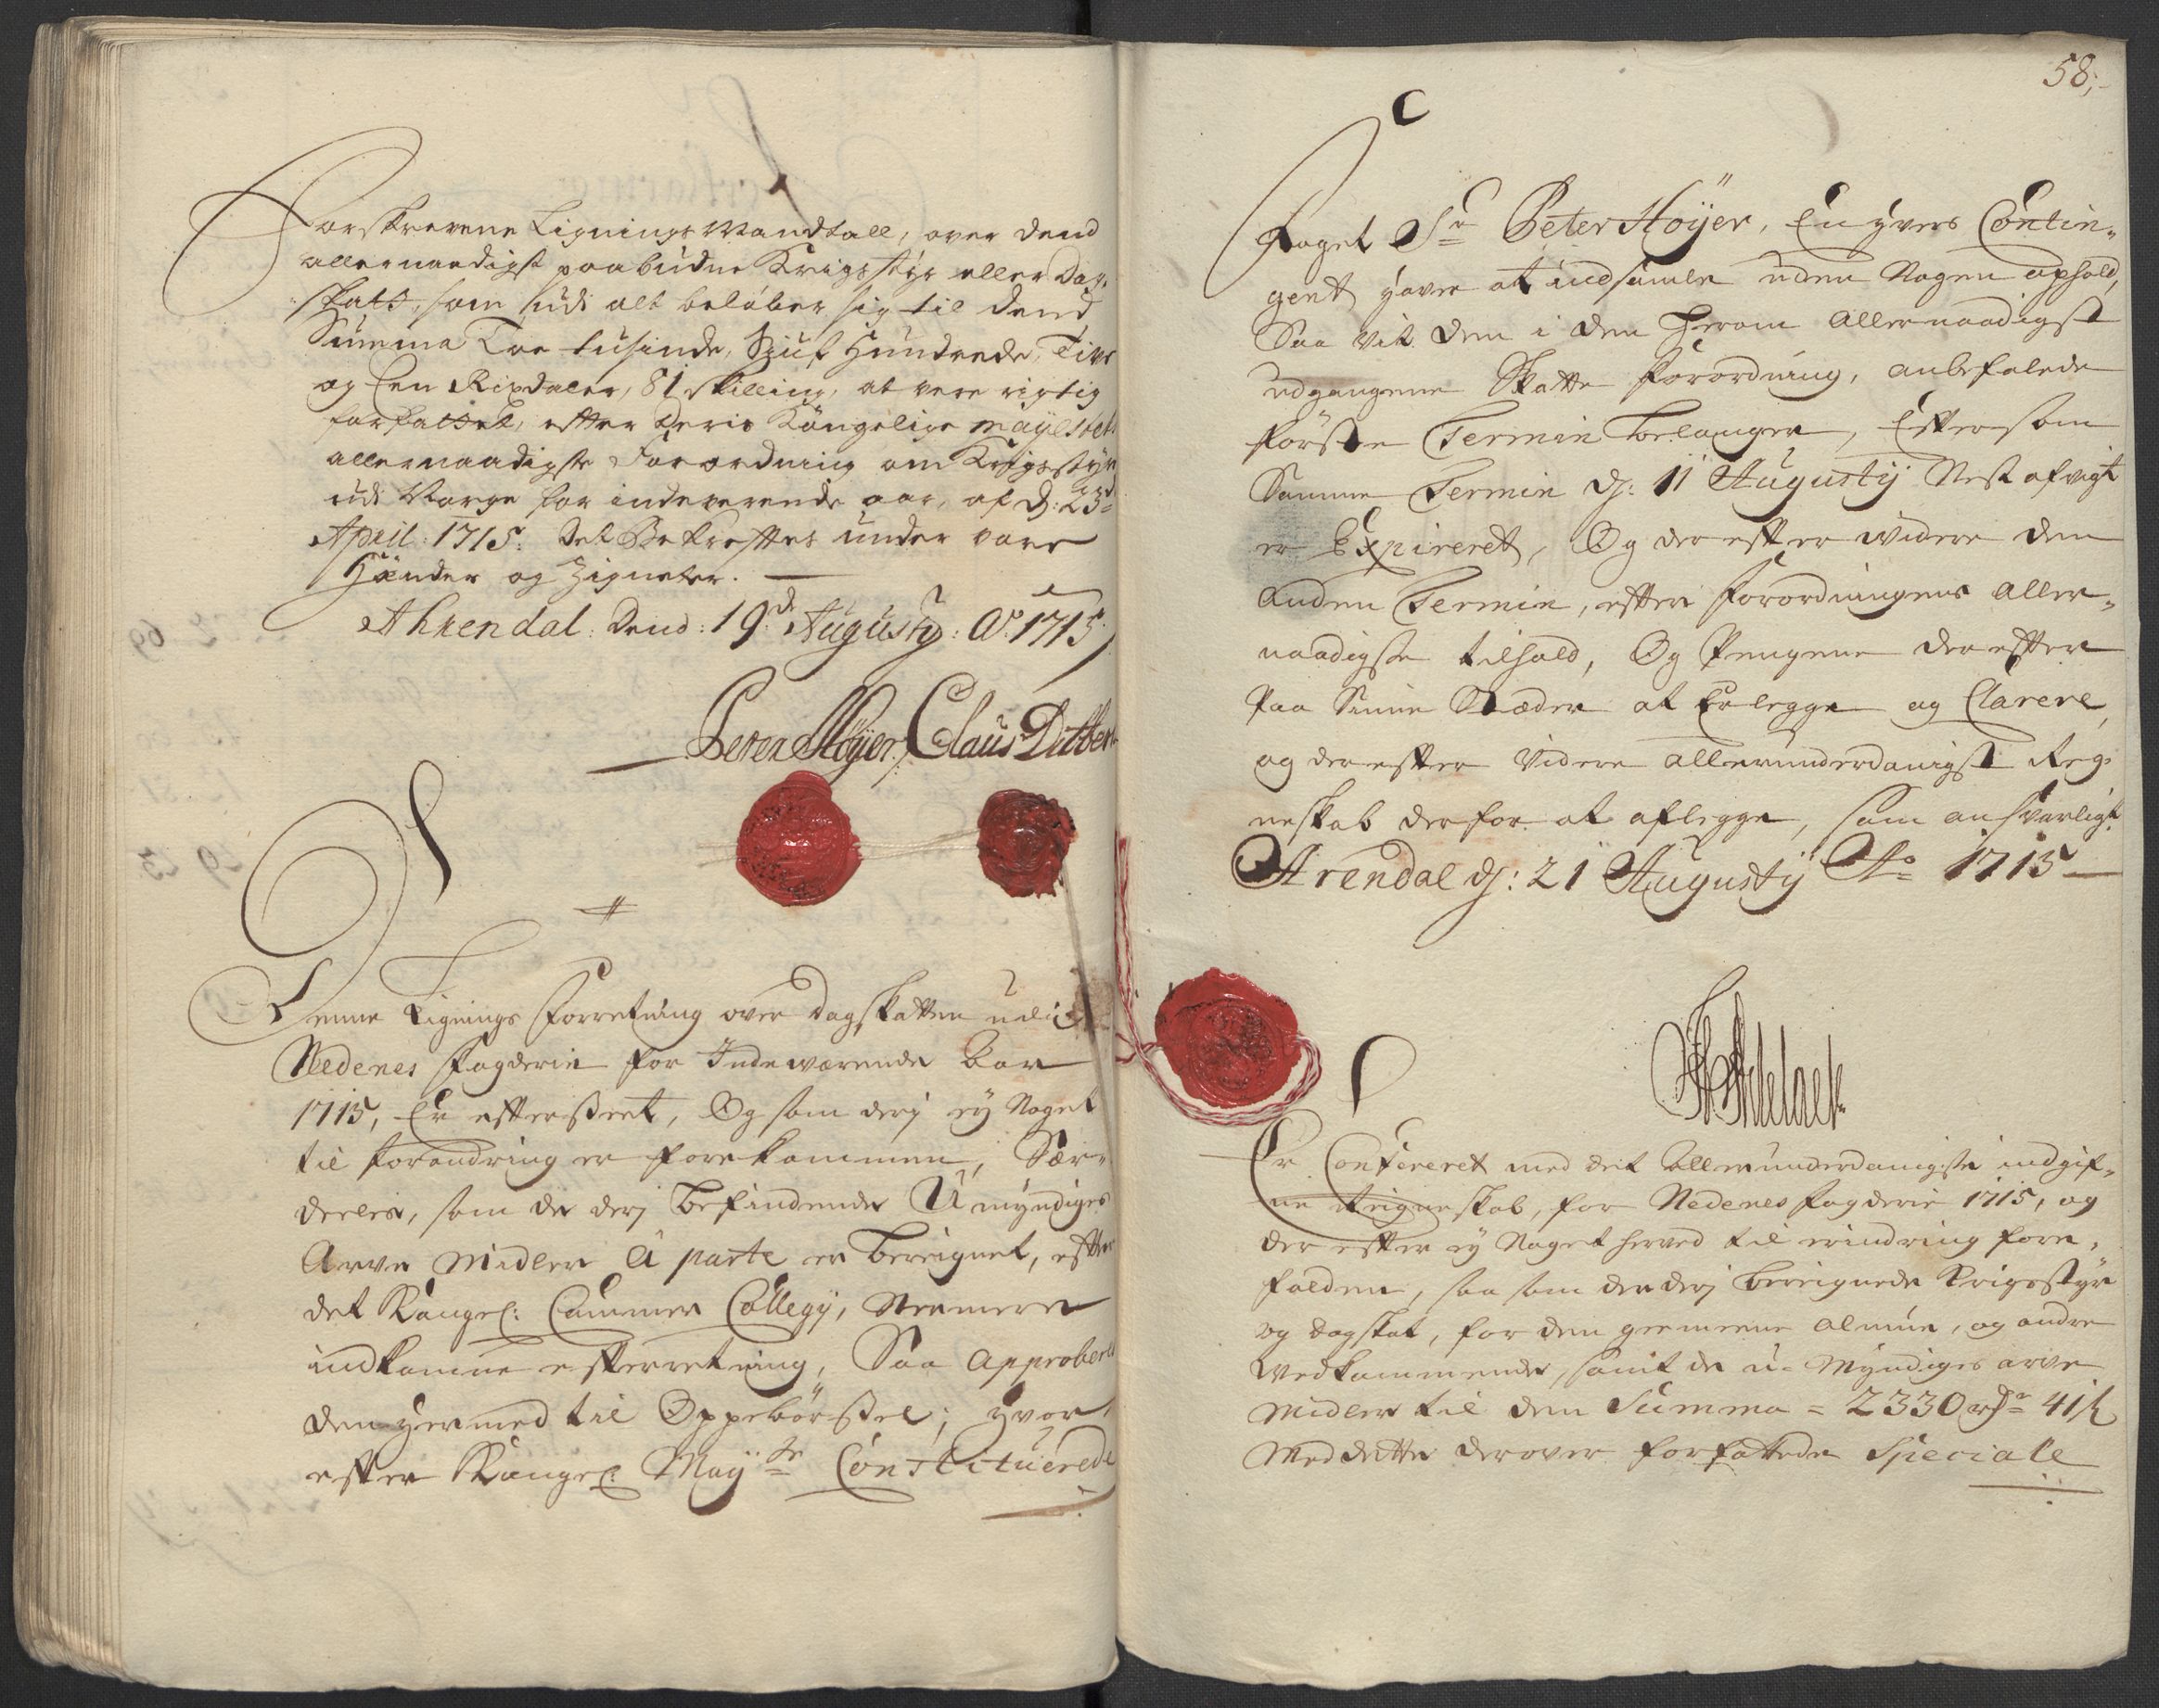 Forskrevene Lignings Mandtall, over dend
allernaadigst paabudne Krigsstyr eller Dag-
skatt, som udi alt beløber sig til dend
Summa Toe tusinde, Sjuf Hundrede, Tive
og Een Rixdaler, 81 skilling, at vere rigtig
forfattet, efter Deris Kongelige mayestets
allernaadigste Forordning om Krigsstyr
udi Norge for indeverende aar, af d: 23de
April: 1715. Det Bekreftes under vore
Hænder og Zigneter.
Ahrendal: Dend: 19de Augusty: Ao: 1715
Peter Høyer, Claus Ditber
Denne Lignings Forretning over dagskatten udi
Nedenes fogderie for Indeværende Aar
1715, Er efterseet, Og som derj ey Noget
til forandring er forekommen, Sær-
deeles, som de derj befindende Umyndiges
Arve Midler â parte er beregnet, efter
det Kongel: Cammer Collegij, Nermere
indkomne efterretning, Saa approberes
den hermed til Oppebørsel; hvor-
efter Kongel: Mayts Constituerede
58;
Foget Sr Peter Höÿer, Enhvers Contin-
gent haver at indsamle uden Nogen ophold,
Saa vit dem i den herom Allernaadigst
udgangene Skatte forordning, anbefalede
förste Termin belanger, Eftersom
Samme Termin d: 11 Augustÿ Nest afvigt
er Expireret, Og derefter widere den
Anden Termin, efter forordningens Aller-
naadigste tilhold, Og Pengene derefter
Paa Sinne Stæder at Erlegge og Clarere,
og derefter Videre allerunderdanigst Reg-
neskab derfor at aflegge, som ansvarligt.
Arendal d: 21 Augustÿ Ao 1715
Er Confereret med det Allerunderdanigste indgif-
ne Reigneskab, for Nedenes fogderie 1715, og
der efter ey Noget herved til erindring fore-
falden, saa som den derj beregnede Krigsstyr
og dagskat, for den gemeene almue, og andre
Vedkommende, samt de u-Myndiges arve
Midler til den Summa = 2330 rdr 41 s
Med dette derover forfattede Speciale